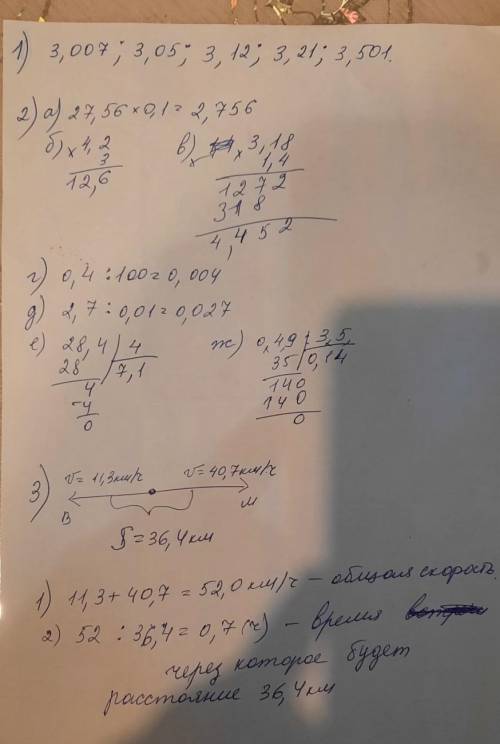 1) 3,007; 3,05; 3,12; 3,21; 3,501.
2) а) 27,56 × 0,1 = 2,756
б) × 4,2
3
12,6
в) × 3,18
1,4
1272
318
4,452
г) 0,4 : 100 = 0,004
д) 2,7 : 0,01 = 0,027
е) 28,4 | 4
28 | 7,1
4
-4
0
ж) 0,4,9 | 3,5,
35 | 0,14
140
140
0
3) v = 11,3 км/ч v = 40,7 км/ч
В М
S = 36,4 км
1) 11,3 + 40,7 = 52,0 км/ч – общая скорость.
2) 52 : 36,4 = 0,7 (ч) – время
через которое будет
расстояние 36,4 км